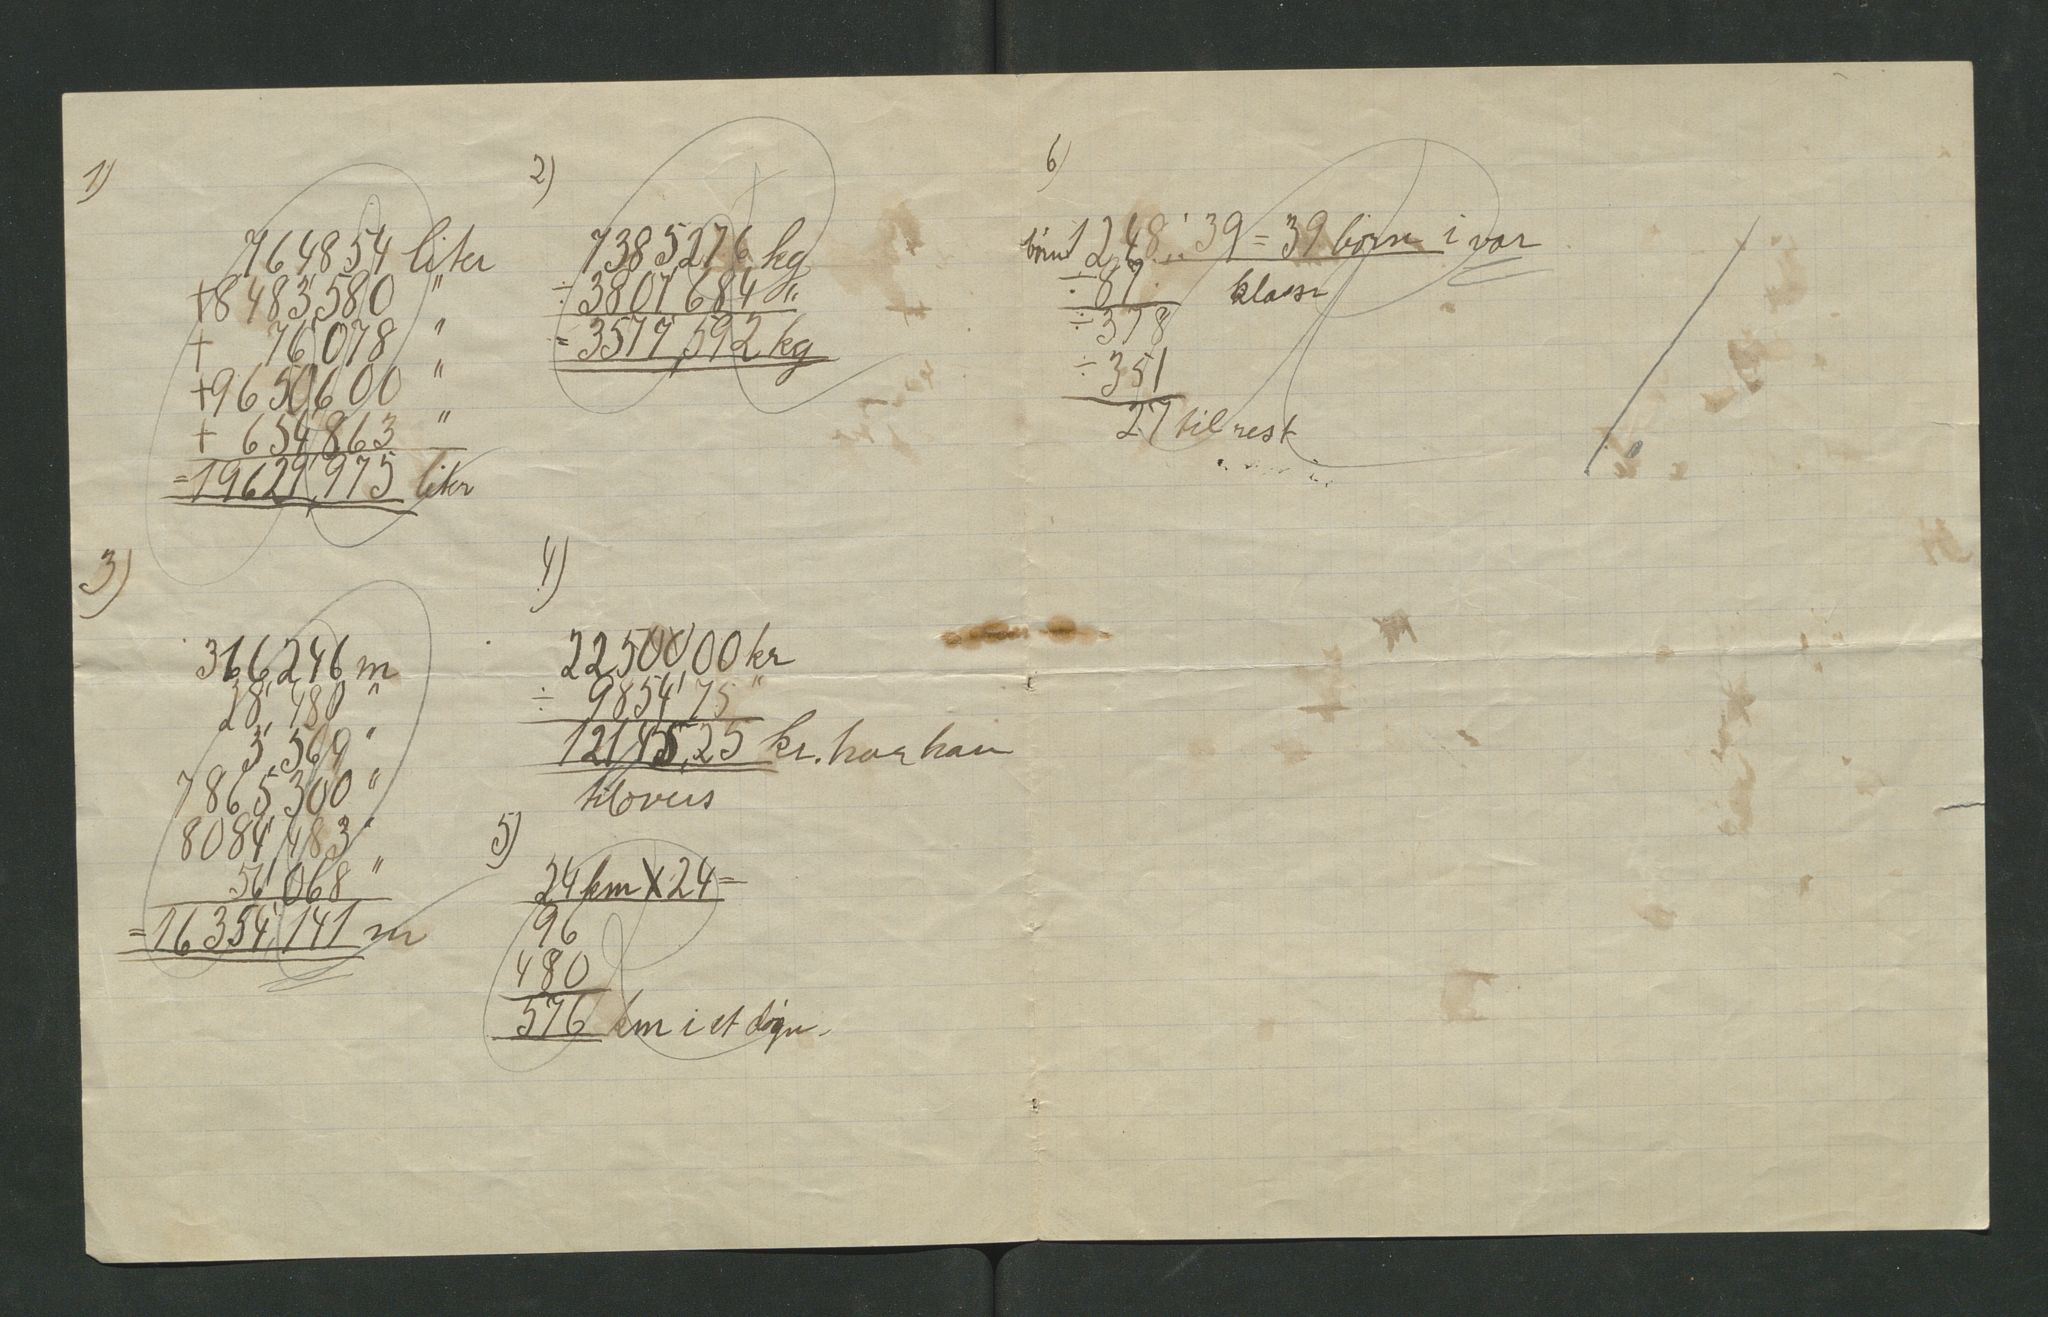 1)
764854 liter
+8483580 "
+ 76078 "
+9650600 "
+ 654863 "
=19629975 liter
2)
7385276 kg
÷3807684 "
=3577592 kg
3)
366246 m
28480 "
3569 "
7865300 "
8084483 "
56068 "
=16354141 m
4)
2250000 kr
÷ 985475 "
12145,25 kr. har han
tilovers
5)
24 km X 24=
96
480
576 km i et døgn.
6)
børn 1248:39=39 børn i vor
÷87 klasse
÷378
÷351
27 til rest